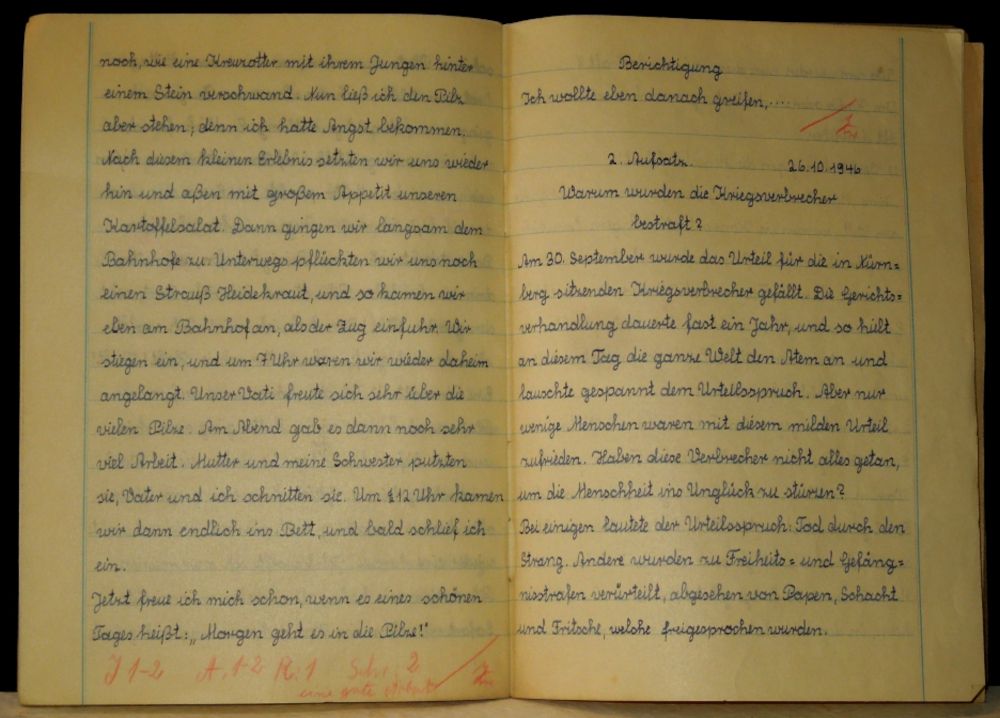 noch, wie eine Kreuzotter mit ihrem Jungen hinter
einem Stein verschwand. Nun ließ ich den Pilz
aber stehen; denn ich hatte Angst bekommen.
Nach diesem kleinen Erlebnis setzten wir uns wieder
hin und aßen mit großem Appetit unseren
Kartoffelsalat. Dann gingen wir langsam dem
Bahnhofe zu. Unterwegs pflückten wir uns noch
einen Strauß Heidekraut, und so kamen wir
eben am Bahnhof an, als der Zug einfuhr. Wir
stiegen ein, und um 7 Uhr waren wir wieder daheim
angelangt. Unser Vati freute sich sehr über die
vielen Pilze. Am Abend gab es dann noch sehr
viel Arbeit. Mutter und meine Schwester putzten
sie, Vater und ich schnitten sie. Um 12 Uhr kamen
wir dann endlich ins Bett, und bald schlief ich
ein.
Jetzt freue ich mich schon, wenn es eines schönen
Tages heißt: „Morgen geht es in die Pilze!"
J 1-2 A. 1-2 R. 1 Schr. 2
eine gute Arbeit
Berichtigung
Ich wollte eben danach greifen,....
2. Aufsatz. 26.10.1946
Warum wurden die Kriegsverbrecher
bestraft?
Am 30. September wurde das Urteil für die in Nürn=
berg sitzenden Kriegsverbrecher gefällt. Die Gerichts=
verhandlung dauerte fast ein Jahr, und so hielt
an diesem Tag die ganze Welt den Atem an und
lauschte gespannt dem Urteilsspruch. Aber nur
wenige Menschen waren mit diesem milden Urteil
zufrieden. Haben diese Verbrecher nicht alles getan,
um die Menschheit ins Unglück zu stürzen?
Bei einigen lautete der Urteilsspruch: Tod durch den
Strang. Andere wurden zu Freiheits= und Gefäng=
nisstrafen verurteilt, abgesehen von Papen, Schacht
und Fritsche, welche freigesprochen wurden.